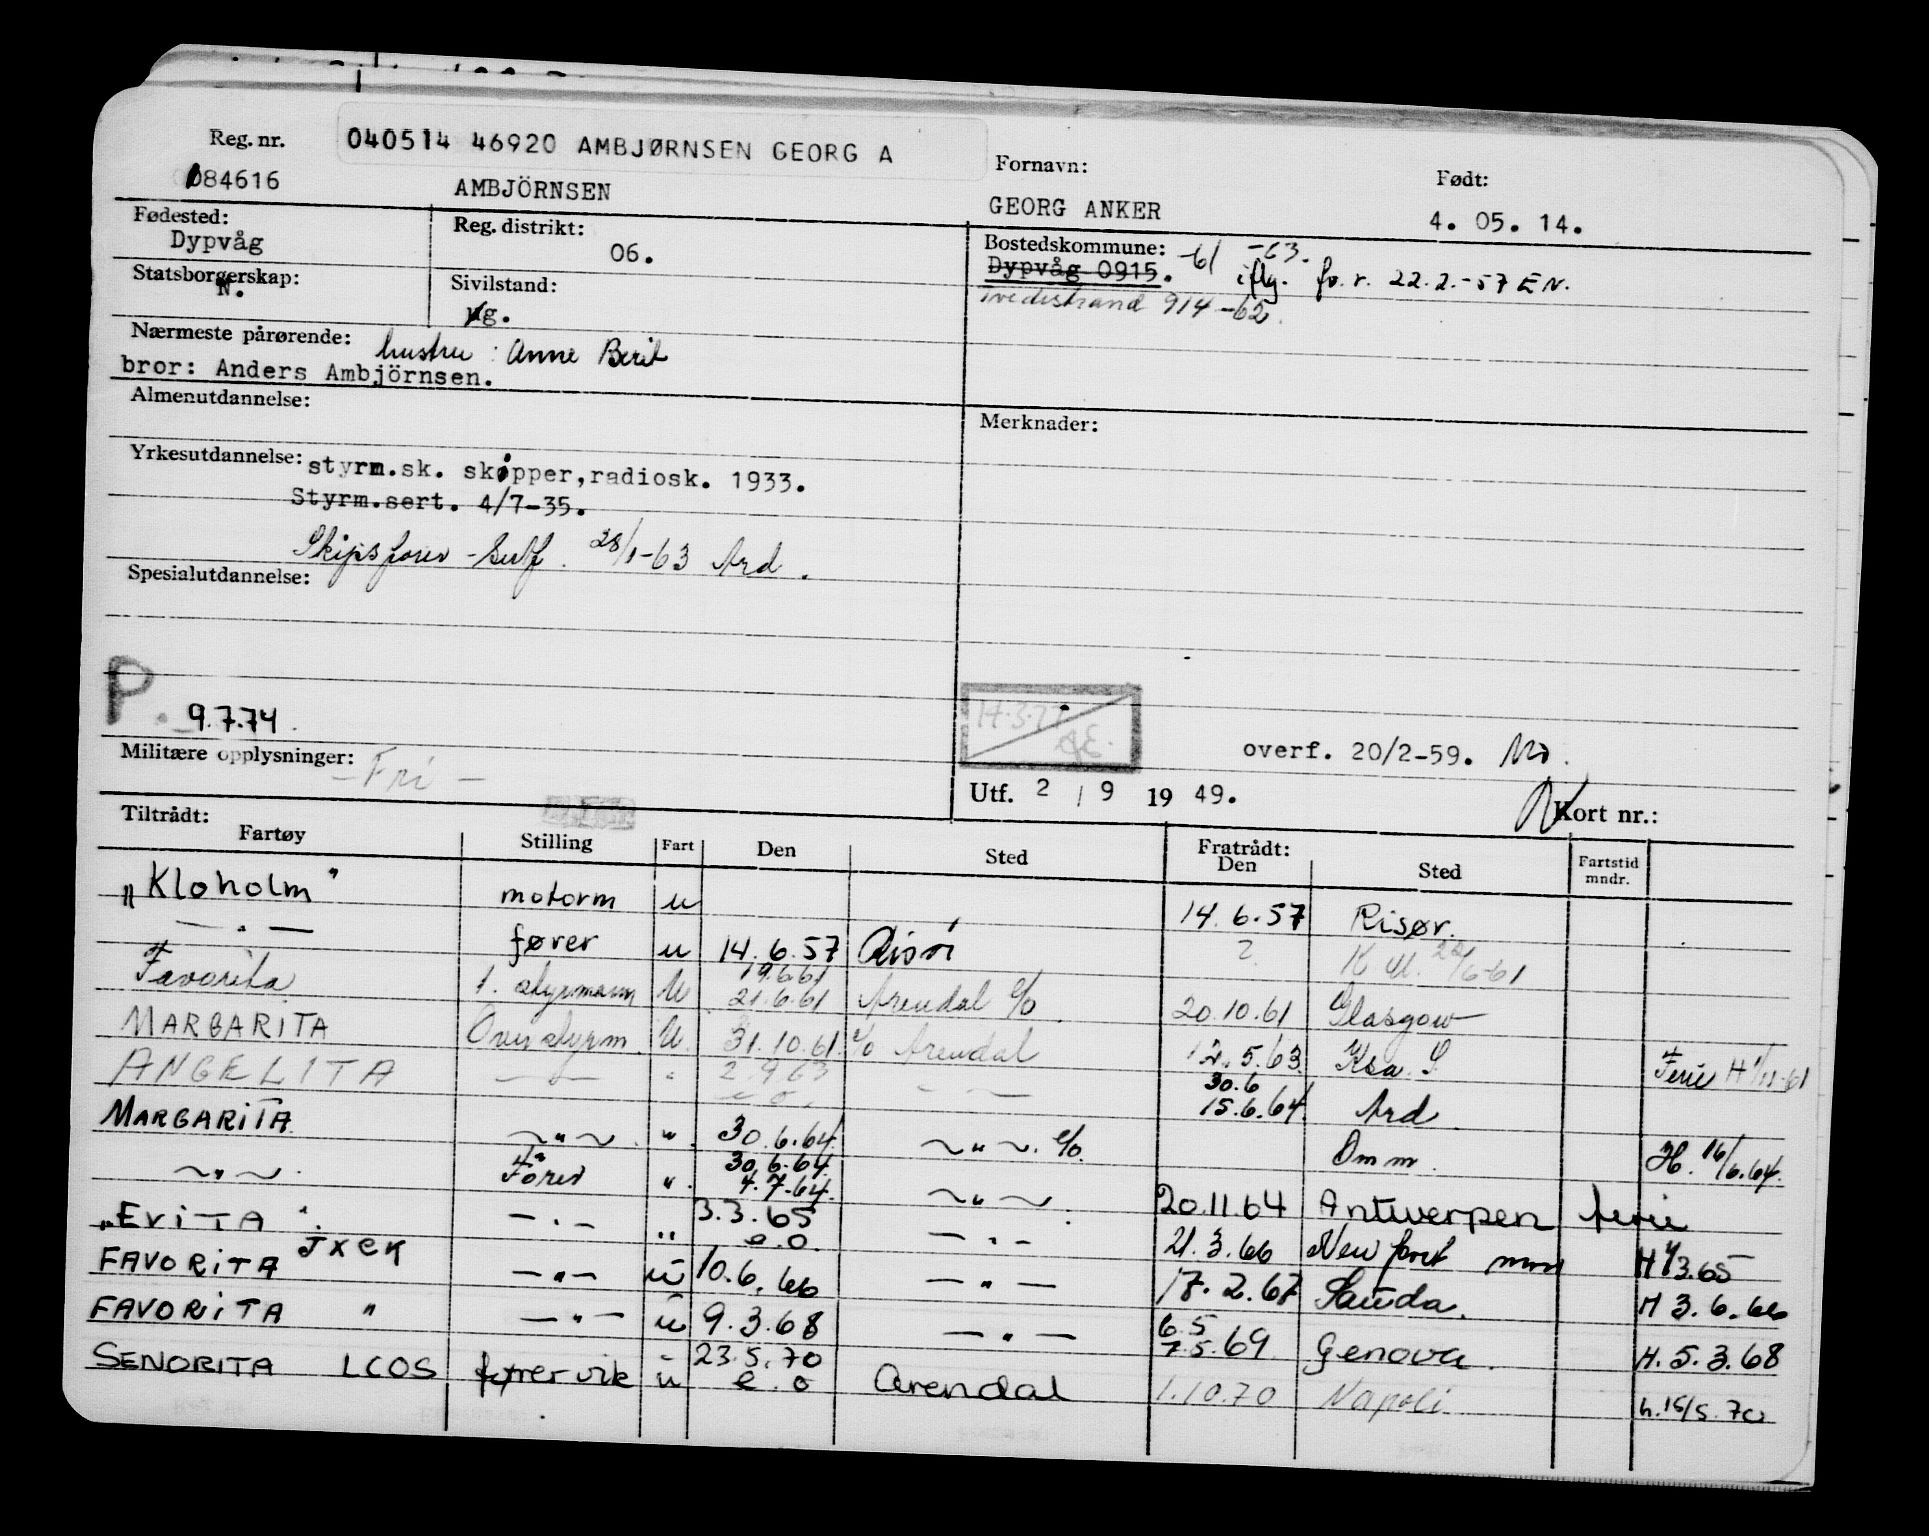 Reg. nr. 040514 46920 AMBJØRNSEN GEORG A Fornavn: Født:
084616 AMBJÖRNSEN GEORG ANKER 4. 05. 14.
Fødested: Dypvåg
Reg. distrikt: 06.
Bostedskommune: -61 -63.
Dypvåg 0915. iflg. fv. r. 22.2.-57 EN.
Tvedestrand 914 -62.
Statsborgerskap: N.
Sivilstand: g.
Nærmeste pårørende: hustru: Anne Berit
bror: Anders Ambjörnsen.
Almenutdannelse:
Merknader:
Yrkesutdannelse: styrm.sk. skipper,radiosk. 1933.
Styrm.sert. 4/7-35.
Skipsfører-sertf. 28/1-63 Ard.
Spesialutdannelse:
P. 9.7.74.
14.3.77
Militære opplysninger: - Fri -
overf. 20/2-59.
Utf. 2 / 9 19 49. Kort nr.:
Tiltrådt: Fartøy Stilling Fart Den Sted Fratrådt: Den Sted Fartstid mndr.
"Kloholm" motorm u 14.6.57 Risør.
— " — fører u 14.6.57 Risør ? K.M. 22/6-61
Favorita 1. styrmann U 19.6.61 21.6.61 Arendal e/o 20.10.61 Glasgow
MARGARITA Overstyrm. U. 31.10.61. e/o Arendal 12.5.63. Ksa. S. Ferie H 1/11-61
ANGELITA — " — " 2.9.63 e.o. — " — 30.6 15.6.64. Ard
MARGARITA. ~ " ~. ". 30.6.64. ~ " ~. e/o. Omm. H. 16/6.64.
~ " ~. Fører ". 30.6.64. 4.7.64. ~ " ~. 20.11.64 Antwerpen ferie
"EVITA". — " — " 3.3.65 e.o. — " — 21.3.66 Newport H 1/3.65
FAVORITA JXCK — " — u 10.6.66 — " — 17.2.67 Sauda. H 3.6.66
FAVORITA " — " — u 9.3.68 — " — 6.5 7.5.69 Genova. H. 5.3.68
SENORITA LCOS fører vik u 23.5.70 e.o Arendal 1.10.70 Napoli h. 15/5.70